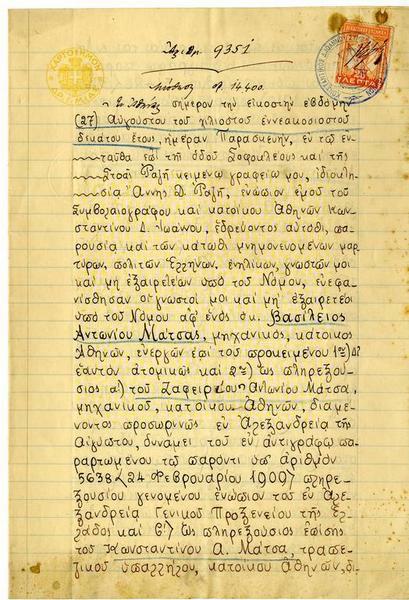 Ἀριθ. 9351
Μίσθωσις δρ. 14400.
Ἐν Ἀθήναις σήμερον τὴν εἰκοστὴν ἑβδόμην
(27) Αὐγούστου τοῦ χιλιοστοῦ ἐννεακοσιοστοῦ
δεκάτου ἔτους, ἡμέραν Παρασκευὴν, ἐν τῷ ἐν-
ταῦθα ἐπὶ τῆς ὁδοῦ Σοφοκλέους καὶ τῆς
Στοᾶς Ῥαζῆ κειμένῳ γραφείῳ μου, ἰδιοκτη-
σία Ἄννης Δ. Ῥαζῆ, ἐνώπιον ἐμοῦ τοῦ
Συμβολαιογράφου καὶ κατοίκου Ἀθηνῶν Κων-
σταντίνου Δ. Ἰωάννου, ἑδρεύοντος αὐτόθι, πα-
ρουσίᾳ καὶ τῶν κάτωθι μνημονευομένων μαρ-
τύρων, πολιτῶν Ἑλλήνων, ἐνηλίκων, γνωστῶν μοι
καὶ μὴ ἐξαιρετέων ὑπὸ τοῦ Νόμου, ἐνεφα-
νίσθησαν οἱ γνωστοί μοι καὶ μὴ ἐξαιρετέοι
ὑπὸ τοῦ Νόμου ἀφ' ἑνὸς ὁ κ. Βασίλειος
Ἀντωνίου Μάτσας, μηχανικὸς, κάτοικος
Ἀθηνῶν, ἐνεργῶν ἐπὶ τοῦ προκειμένου 1ον) δι'
ἑαυτὸν ἀτομικῶς καὶ 2ον) ὡς πληρεξού-
σιος α) τοῦ Ζαφειρίου Ἀντωνίου Μάτσα,
μηχανικοῦ, κατοίκου Ἀθηνῶν, διαμέ-
νοντος προσωρινῶς ἐν Ἀλεξανδρείᾳ τῆς
Αἰγύπτου, δυνάμει τοῦ ἐν ἀντιγράφῳ πα-
ραρτωμένου τῷ παρόντι ὑπ' ἀριθμὸν
5638 24 Φεβρουαρίου 1909 πληρε-
ξουσίου γενομένου ἐνώπιον τοῦ ἐν Ἀλε-
ξανδρείᾳ Γενικοῦ Προξενείου τῆς Ἑλ-
λάδος καὶ β) ὡς πληρεξούσιος ἐπίσης
τοῦ Κωνσταντίνου Α. Μάτσα, τραπε-
ζικοῦ ὑπαλλήλου, κατοίκου Ἀθηνῶν, δι-
ΧΑΡΤΟΣΗΜΟΝ
ΔΡΑΧΜΗΣ
ΛΕΠΤΑ